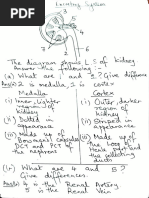 Learning System
3
5
1
4
2
7
6
The diagram shows L S of kidney
Answer the following
(a) What are 1 and 2? Give difference
Ans(a) 2 is medulla, 1 is cortex
Medulla
Cortex
(i) Inner, lighter
region of
kidney
(i) Outer, darker
region of
kidney
(ii) Dotted in
appearance
(ii) Striped in
appearance
(iii) Made up of
Bowman's Capsule
DCT and PCT of
the nephrons
(iii) Made up of
the loop
and the
collecting
ducts
(b) What are 4 and 5?
Give difference
Ans(b) 4 is the Renal Artery
5 is the Renal Vein